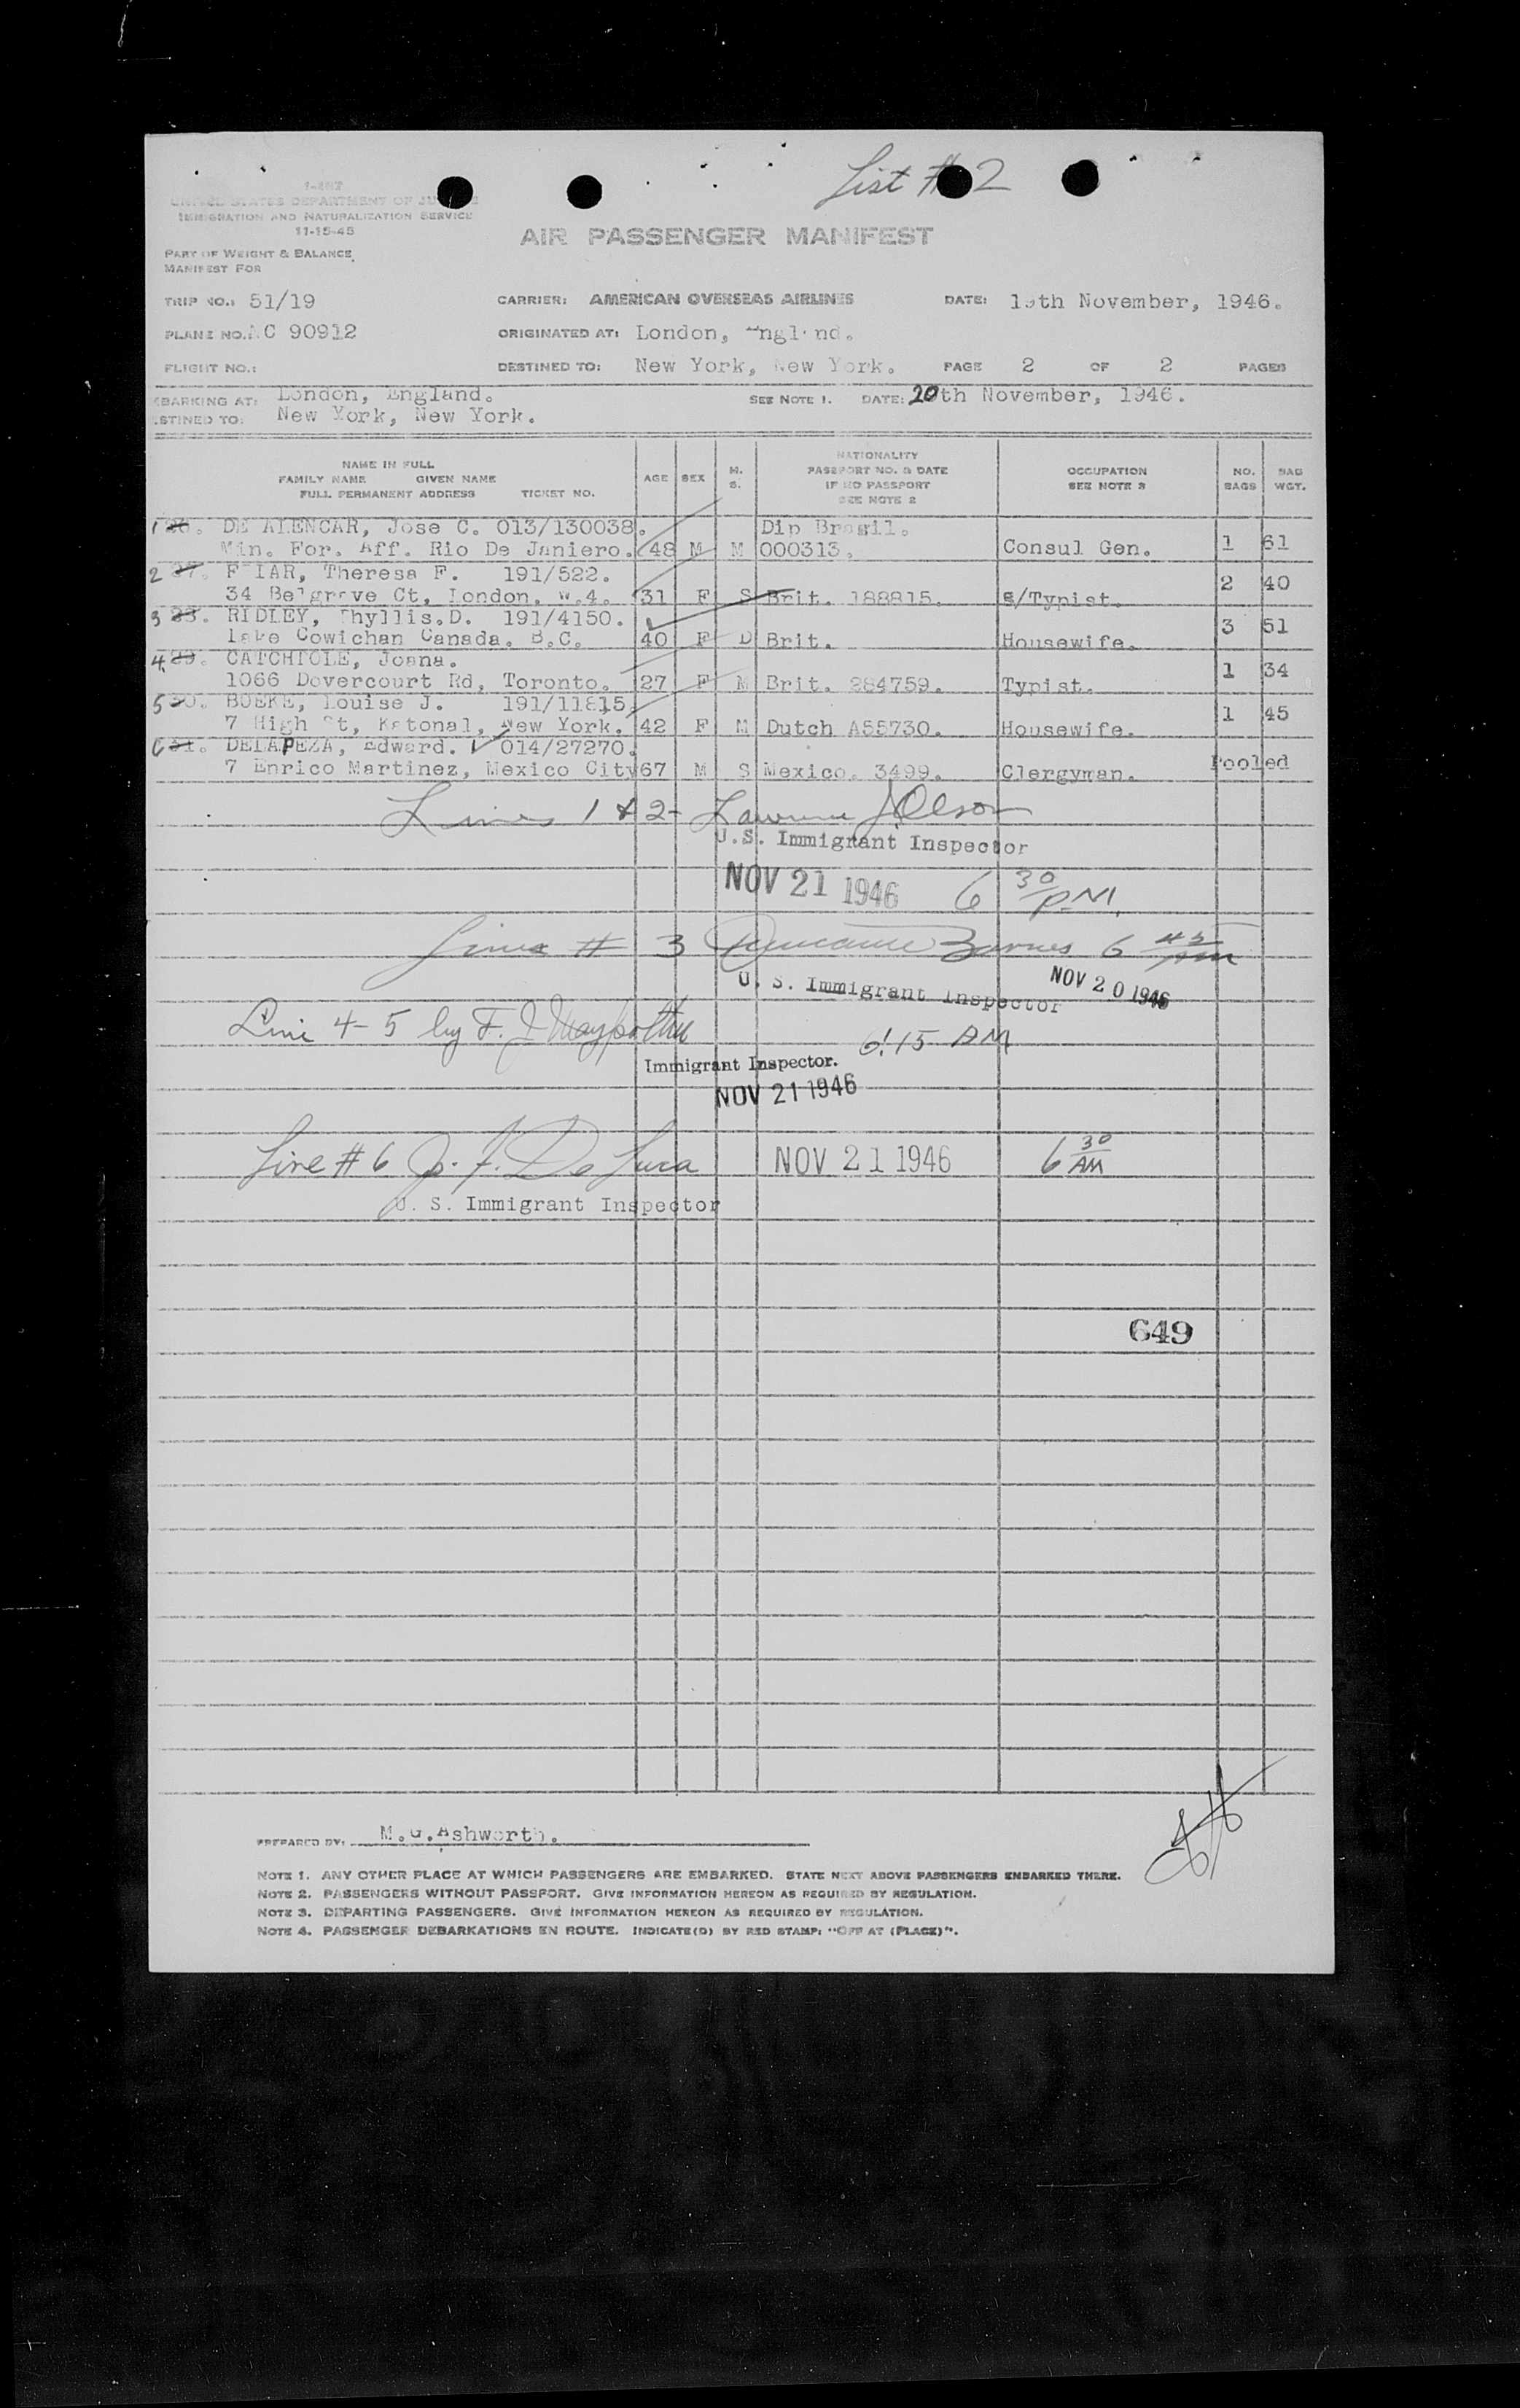 List # 2
I-487
UNITED STATES DEPARTMENT OF JUSTICE
IMMIGRATION AND NATURALIZATION SERVICE
11-15-45
AIR PASSENGER MANIFEST
PART OF WEIGHT & BALANCE
MANIFEST FOR
TRIP NO.: 51/19 CARRIER: AMERICAN OVERSEAS AIRLINES DATE: 19th November, 1946.
PLANE NO. NC 90912 ORIGINATED AT: London, England.
FLIGHT NO.: DESTINED TO: New York, New York. PAGE 2 OF 2 PAGES
EMBARKING AT: London, England. SEE NOTE 1. DATE: 20th November, 1946.
DESTINED TO: New York, New York.
NAME IN FULL
FAMILY NAME GIVEN NAME
FULL PERMANENT ADDRESS TICKET NO.
AGE SEX M. S.
NATIONALITY
PASSPORT NO. & DATE
IF NO PASSPORT
SEE NOTE 2
OCCUPATION
SEE NOTE 3
NO. BAGS
BAG WGT.
1 26. DE ALENCAR, Jose C. 013/130038. Dip Bragil.
Min. For. Aff. Rio De Janiero. 48 M M 000313. Consul Gen. 1 61
2 27. FRIAR, Theresa F. 191/522.
34 Belgrave Ct, London. W.4. 31 F S Brit. 188815. S/Typist. 2 40
3 28. RIDLEY, Phyllis.D. 191/4150.
Lake Cowichan Canada. B.C. 40 F D Brit. Housewife. 3 51
4 29. CATCHPOLE, Joana.
1066 Dovercourt Rd, Toronto. 27 F M Brit. 284759. Typist. 1 34
5 30. BOEKE, Louise J. 191/11815.
7 High St, Katonal, New York. 42 F M Dutch A55730. Housewife. 1 45
6 31. DELAPEZA, Edward. 014/27270.
7 Enrico Martinez, Mexico City 67 M S Mexico. 3499. Clergyman. Pooled
Lines 1 & 2- Lawrence J Olson
U.S. Immigrant Inspector
NOV 21 1946 6 30 P.M.
Line # 3 Barnes 6 45
U. S. Immigrant Inspector NOV 20 1946
Line 4-5 by F. J.
6:15 AM
Immigrant Inspector.
NOV 21 1946
Line # 6 J. De Luca NOV 21 1946 6 30 AM
U. S. Immigrant Inspector
649
PREPARED BY: M.G.Ashworth.
NOTE 1. ANY OTHER PLACE AT WHICH PASSENGERS ARE EMBARKED. STATE NEXT ABOVE PASSENGERS EMBARKED THERE.
NOTE 2. PASSENGERS WITHOUT PASSPORT. GIVE INFORMATION HEREON AS REQUIRED BY REGULATION.
NOTE 3. DEPARTING PASSENGERS. GIVE INFORMATION HEREON AS REQUIRED BY REGULATION.
NOTE 4. PASSENGER DEBARKATIONS EN ROUTE. INDICATE(D) BY RED STAMP: "OFF AT (PLACE)".